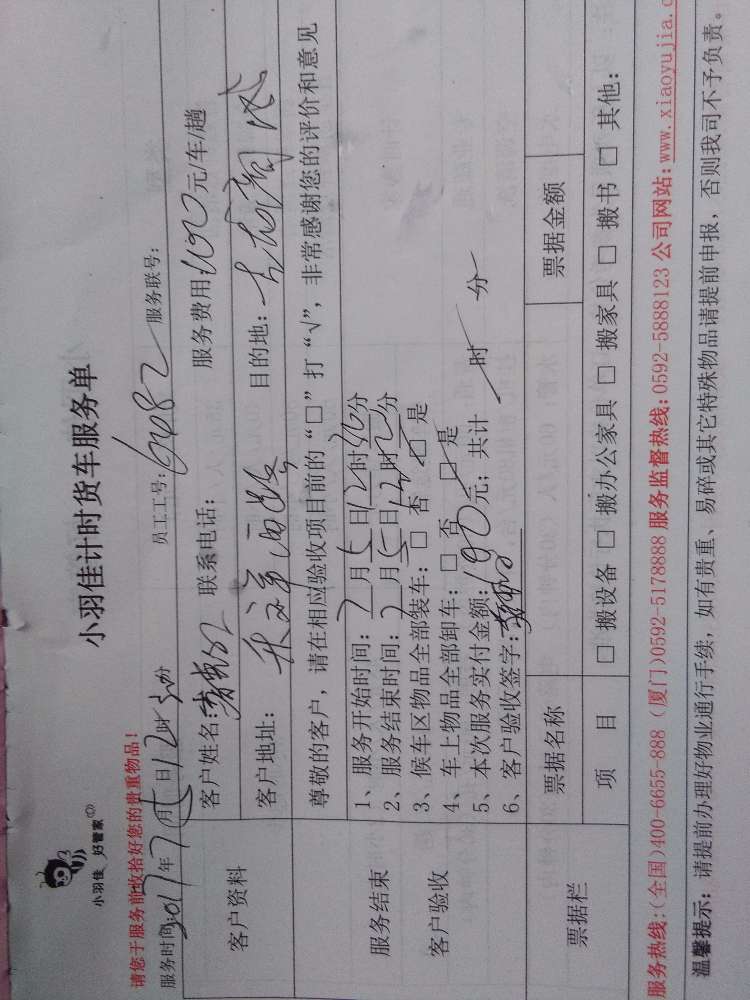 小羽佳 好管家
小羽佳计时货车服务单
请您于服务前收拾好您的贵重物品！
服务时间：2011年7月5日12时30分 员工工号：6082 服务联号：
客户资料
客户姓名： 联系电话： 服务费用：100元/车/趟
客户地址： 目的地：
尊敬的客户，请在相应验收项目前的“□”打“√”，非常感谢您的评价和意见
服务结束
客户验收
1、服务开始时间：7月5日12时30分
2、服务结束时间：7月5日 时 分
3、候车区物品全部装车：□ 否 □ 是
4、车上物品全部卸车：□ 否 □ 是
5、本次服务实付金额：190元；共计 时 分
6、客户验收签字：
票据栏
票据名称 票据金额
项 目 □ 搬设备 □ 搬办公家具 □ 搬家具 □ 搬书 □ 其他：
服务热线：(全国)400-6655-888 (厦门)0592-5178888 服务监督热线：0592-5888123 公司网站：www.xiaoyujia.c
温馨提示：请提前办理好物业通行手续，如有贵重、易碎或其它特殊物品请提前申报，否则我司不予负责。